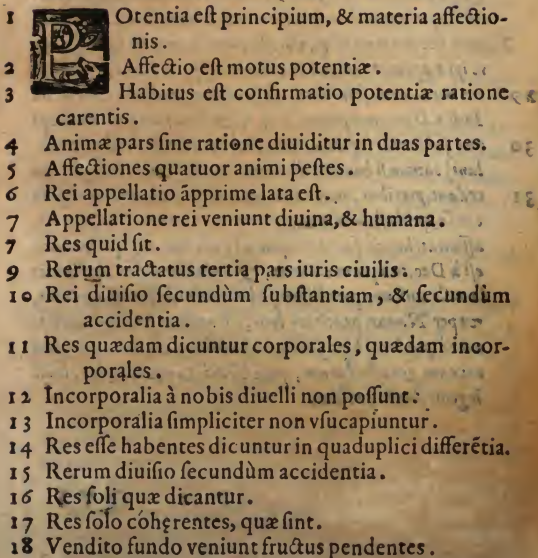 1 POtentia eſt principium, & materia affectio-
nis.
2 Affectio eſt motus potentiæ.
3 Habitus eſt confirmatio potentiæ ratione
carentis.
4 Animæ pars ſine ratione diuiditur in duas partes.
5 Affectiones quatuor animi peſtes.
6 Rei appellatio ãpprime lata eſt.
7 Appellatione rei veniunt diuina, & humana.
7 Res quid ſit.
9 Rerum tractatus tertia pars iuris ciuilis.
10 Rei diuiſio ſecundùm ſubſtantiam, & ſecundùm
accidentia.
11 Res quædam dicuntur corporales, quædam incor-
porales.
12 Incorporalia à nobis diuelli non poſſunt.
13 Incorporalia ſimpliciter non vſucapiuntur.
14 Res eſſe habentes dicuntur in quaduplici differẽtia.
15 Rerum diuiſio ſecundùm accidentia.
16 Res ſoli quæ dicantur.
17 Res ſolo cóhęrentes, quæ ſint.
18 Vendito fundo veniunt fructus pendentes.